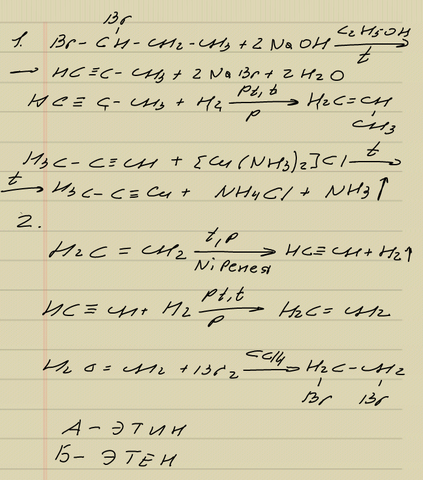 Br
1. Br-CH-CH₂-CH₃ + 2 NaOH C₂H₅OH t →
→ HC≡C-CH₃ + 2 NaBr + 2 H₂O
HC≡C-CH₃ + H₂ Pt, t p → H₂C=CH
CH₃
H₃C-C≡CH + [Cu(NH₃)₂]Cl t →
t → H₃C-C≡Cu + NH₄Cl + NH₃↑
2.
H₂C=CH₂ t, p Ni Ренея → HC≡CH + H₂↑
HC≡CH + H₂ Pt, t p → H₂C=CH₂
H₂C=CH₂ + Br₂ CCl₄ → H₂C-CH₂
Br Br
А - ЭТИН
Б - ЭТЕН